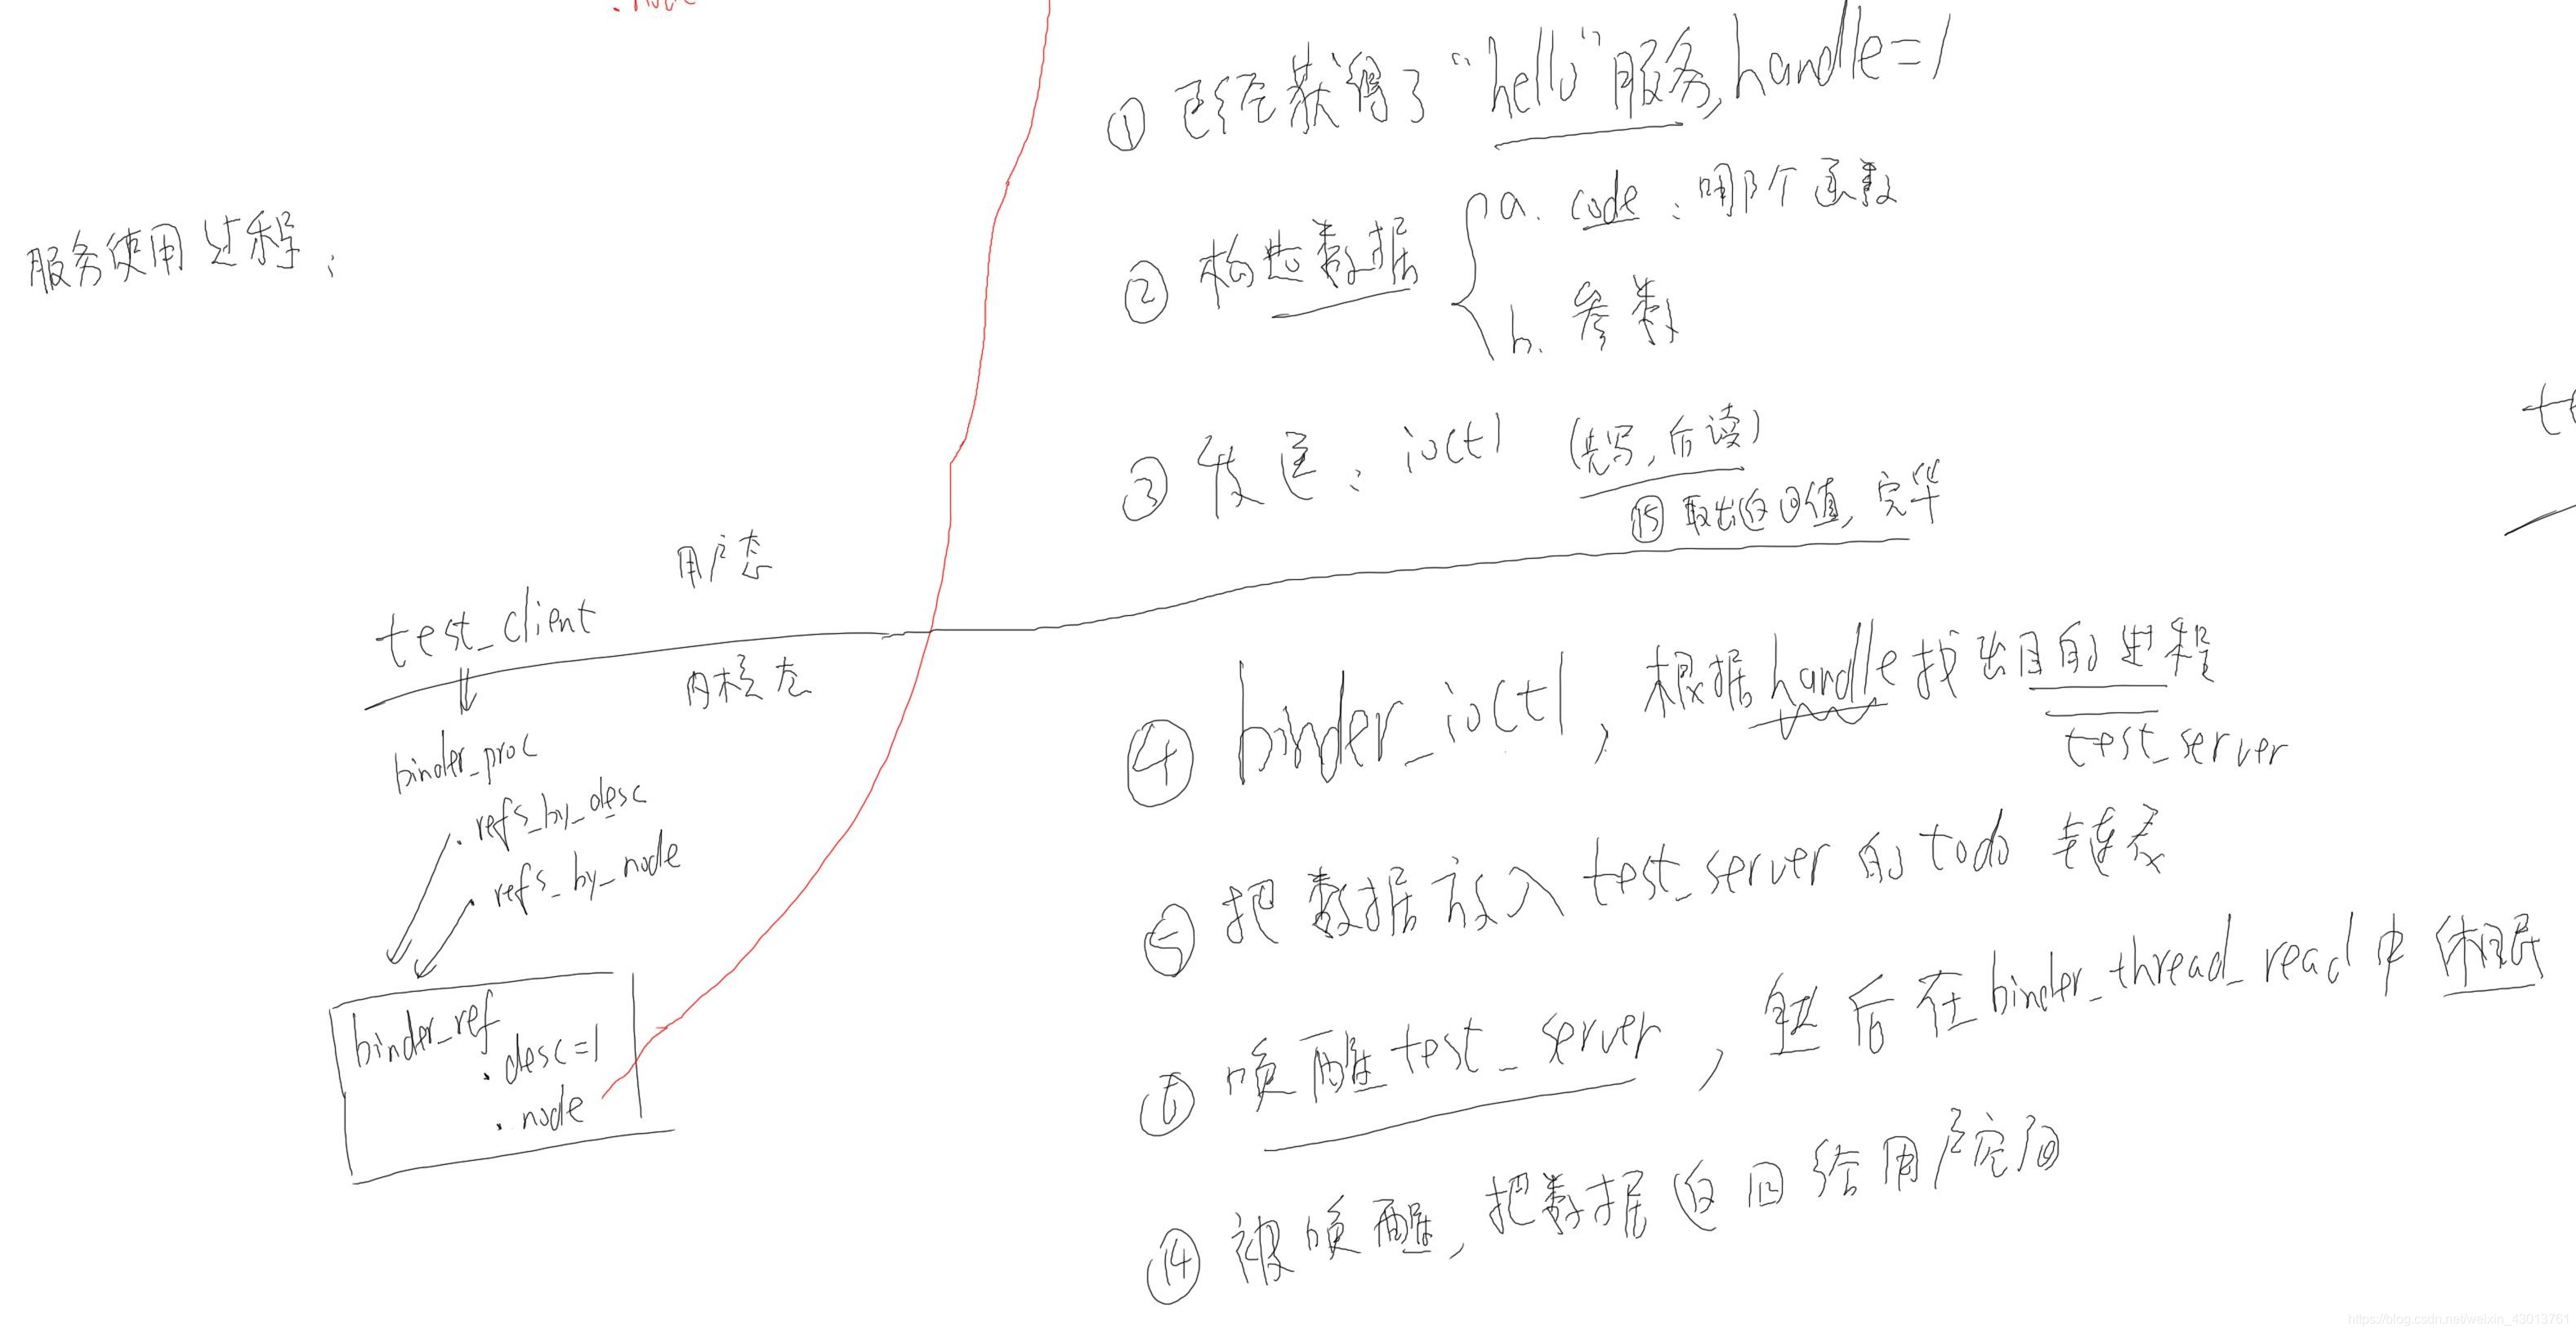 .node
服务使用过程：
① 已经获得了“hello”服务, handle=1
② 构造数据
a. code：哪个函数
b. 参数
③ 发送：ioctl (先写, 后读)
⑮ 取出返回值, 完毕
用户态
test_client
内核态
binder_proc
.refs_by_desc
.refs_by_node
binder_ref
.desc=1
.node
④ binder_ioctl, 根据handle找出目的进程
test_server
⑤ 把数据放入test_server的todo链表
⑥ 唤醒test_server, 然后在binder_thread_read中休眠
⑭ 被唤醒, 把数据返回给用户空间
https://blog.csdn.net/weixin_43013761